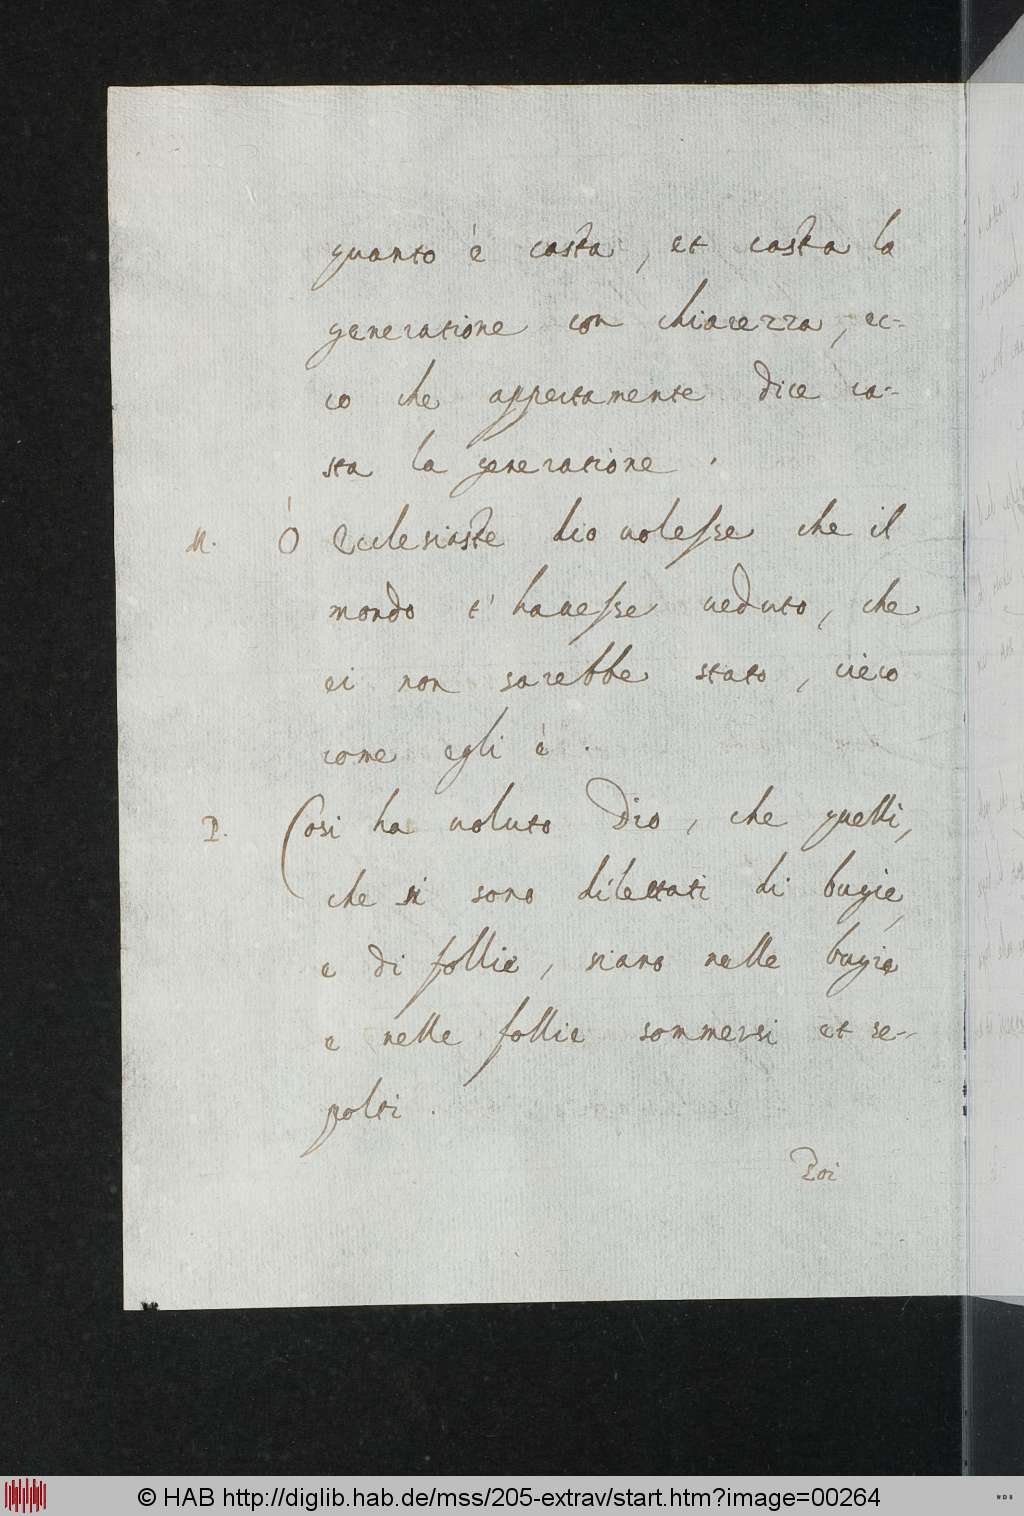 quanto è casta, et casta la
generatione con chiarezza, ec-
co che appertamente dice ca-
sta la generatione.
M. Ó Ecclesiaste dio uolesse che il
mondo t' hauesse ueduto, che
ei non sarebbe stato, cieco
come egli è.
P. Cosi ha uoluto Dio, che quelli,
che si sono dilettati di bugie,
e di follie, siano nelle bugie
e nelle follie sommersi et se-
polti.
Poi
© HAB http://diglib.hab.de/mss/205-extrav/start.htm?image=00264